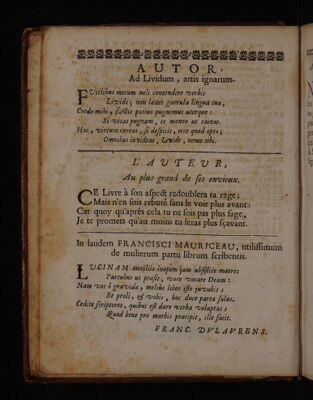 AUTOR,
Ad Lividum, artis ignarum.
FUtilibus mecum noli contendere verbis
Livide; non lædet garrula lingua tua,
Crede mihi, factis potius pugnemus uterque:
Si vitas pugnam, te moneo ut taceas.
Hoc, virtute carens, si despicis, ecce quod opto;
Omnibus invideas, Livide, nemo tibi.
L'AUTEUR,
Au plus grand de ses envieux.
CE Livre à son aspect redoublera ta rage;
Mais n'en sois rebuté sans le voir plus avant:
Car quoy qu'aprés cela tu ne sois pas plus sage,
Je te promets qu'au moins tu seras plus sçavant.
In laudem FRANCISCI MAURICEAU, utilissimum
de mulierum partu librum scribentis.
LUCINAM auxiliis inopem jam absistite matres
Partubus ut prosit, voce vocare Deam:
Nam vos ô gravidæ, meliùs liber iste juvabit;
Et proli, & vobis, hoc duce parta salus.
Cedite scriptores, quibus est dare verba voluptas;
Quod bene pro morbis præcipit, ille facit.
FRANC. DVLAVRENS.